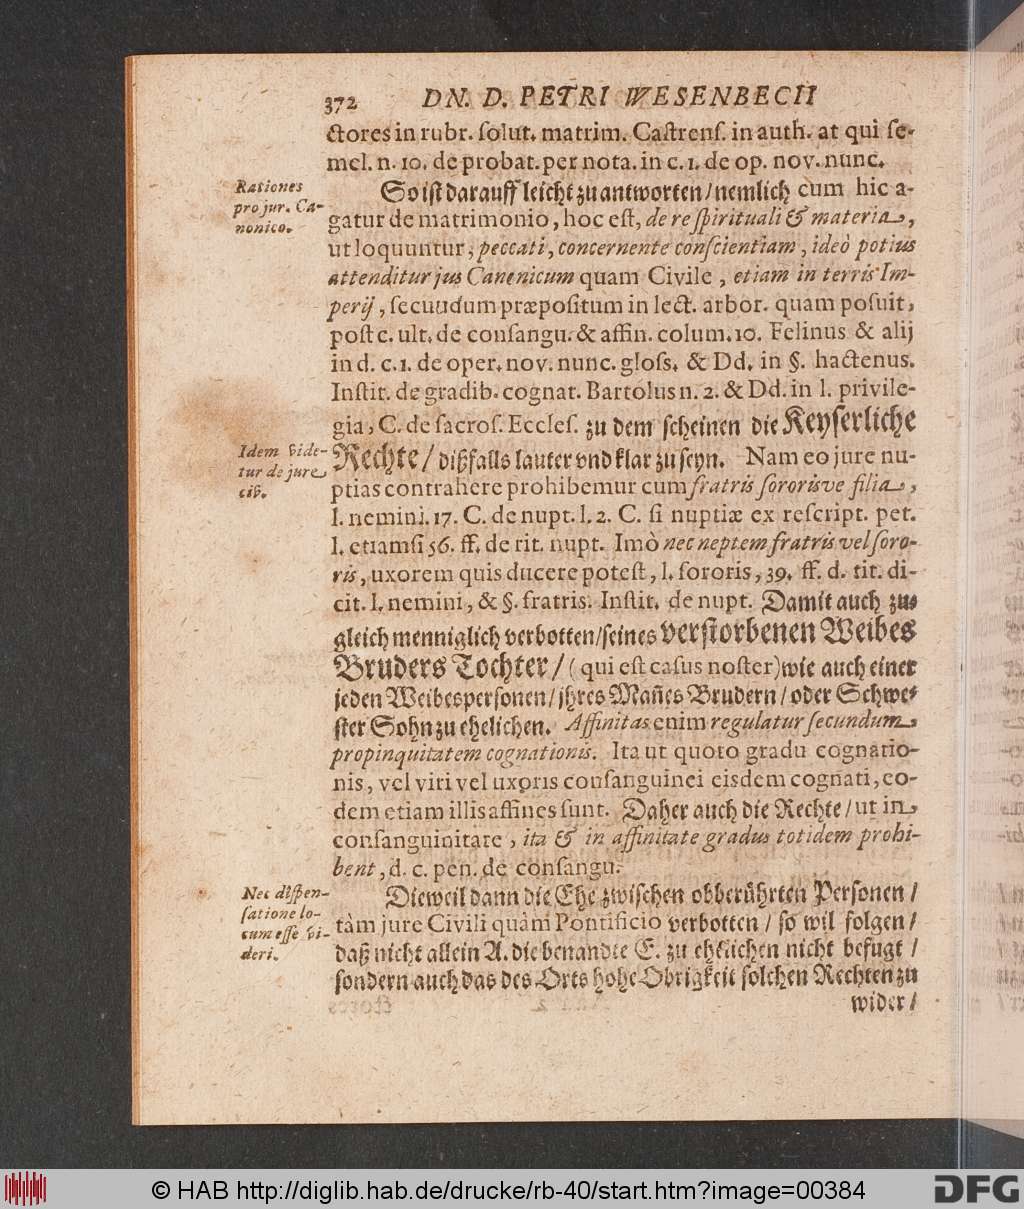 372 DN. D. PETRI WESENBECII
ctores in rubr. solut. matrim. Castrens. in auth. at qui se-
mel. n. 10. de probat. per nota. in c. 1. de op. nov. nunc.
Rationes
pro jur. Ca-
nonico.
So ist darauff leicht zu antworten / nemlich cum hic a-
gatur de matrimonio, hoc est, de re spirituali & materia,
ut loquuntur, peccati, concernente conscientiam, ideò potius
attenditur jus Canenicum quam Civile, etiam in terris Im-
perij, secundum præpositum in lect. arbor. quam posuit,
post c. ult. de consangu. & affin. colum. 10. Felinus & alij
in d. c. 1. de oper. nov. nunc. gloss. & Dd. in §. hactenus.
Instit. de gradib. cognat. Bartolus n. 2. & Dd. in l. privile-
gia, C. de sacros. Eccles. zu dem scheinen die Keyserliche
Idem vide-
tur de jure
civ.
Rechte / dißfalls lauter vnd klar zu seyn. Nam eo jure nu-
ptias contrahere prohibemur cum fratris sororisve filia,
l. nemini. 17. C. de nupt. l. 2. C. si nuptiæ ex rescript. pet.
l. etiamsi 56. ff. de rit. nupt. Imò nec neptem fratris vel soro-
ris, uxorem quis ducere potest, l. sororis, 39. ff. d. tit. di-
cit. l. nemini, & §. fratris. Instit. de nupt. Damit auch zu-
gleich menniglich verbotten / seines verstorbenen Weibes
Bruders Tochter / (qui est casus noster) wie auch einer
jeden Weibespersonen / jhres Mañes Brudern / oder Schwe-
ster Sohn zu ehelichen. Affinitas enim regulatur secundum
propinquitatem cognationis. Ita ut quoto gradu cognatio-
nis, vel viri vel uxoris consanguinei eisdem cognati, eo-
dem etiam illis affines sunt. Daher auch die Rechte / ut in
consanguinitate, ita & in affinitate gradus totidem prohi-
bent, d. c. pen. de consangu.
Nec dispen-
satione lo-
cum esse vi-
deri.
Dieweil dann die Ehe zwischen obberührten Personen /
tàm jure Civili quàm Pontificio verbotten / so wil folgen /
daß nicht allein A. die benandte E. zu ehelichen nicht befugt /
sondern auch das des Orts hohe Obrigkeit solchen Rechten zu
wider /
© HAB http://diglib.hab.de/drucke/rb-40/start.htm?image=00384
DFG